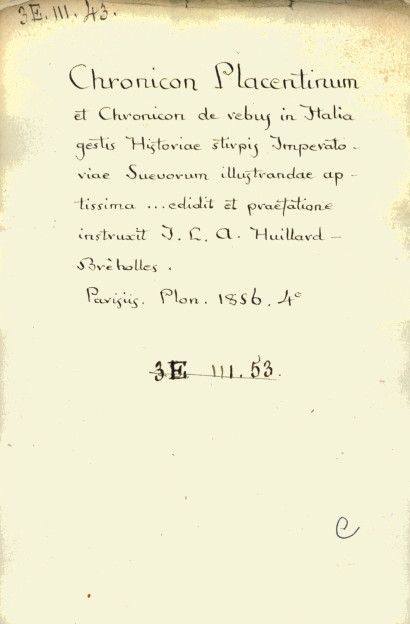 3E. III. 43.
Chronicon Placentinum
et Chronicon de rebus in Italia
gestis Historiae stirpis Imperato-
riae Suevorum illustrandae ap-
tissima ... edidit et praefatione
instruxit J. L. A. Huillard-
Brèholles.
Parisiis. Plon. 1856. 4°
3E III. 53.
C